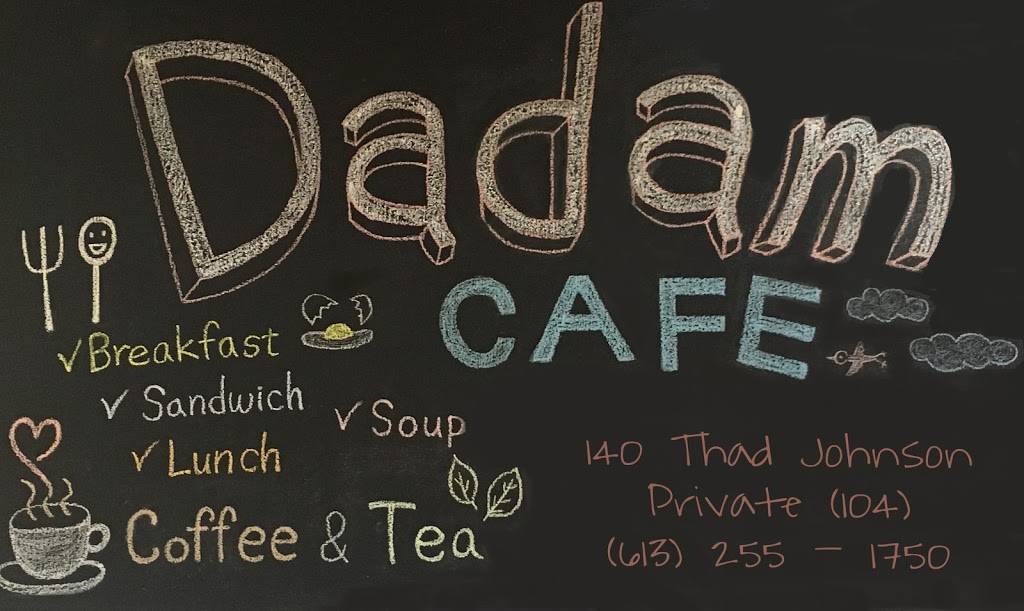 Dadam
CAFE
✓Breakfast
✓ Sandwich
✓ Soup
✓ Lunch
Coffee & Tea
140 Thad Johnson
Private (104)
(613) 255 - 1750